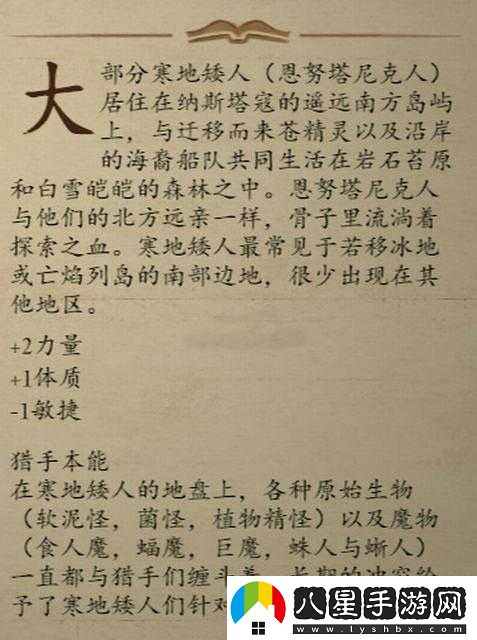 大部分寒地矮人（恩努塔尼克人）
居住在纳斯塔寇的遥远南方岛屿
上，与迁移而来苍精灵以及沿岸
的海裔船队共同生活在岩石苔原
和白雪皑皑的森林之中。恩努塔尼克人
与他们的北方远亲一样，骨子里流淌着
探索之血。寒地矮人最常见于若移冰地
或亡焰列岛的南部边地，很少出现在其
他地区。
+2力量
+1体质
-1敏捷
猎手本能
在寒地矮人的地盘上，各种原始生物
（软泥怪，菌怪，植物精怪）以及魔物
（食人魔，蝠魔，巨魔，蛛人与蜥人）
一直都与猎手们缠斗着
予了寒地矮人们针对
八星手游网
www.lyshbx.com